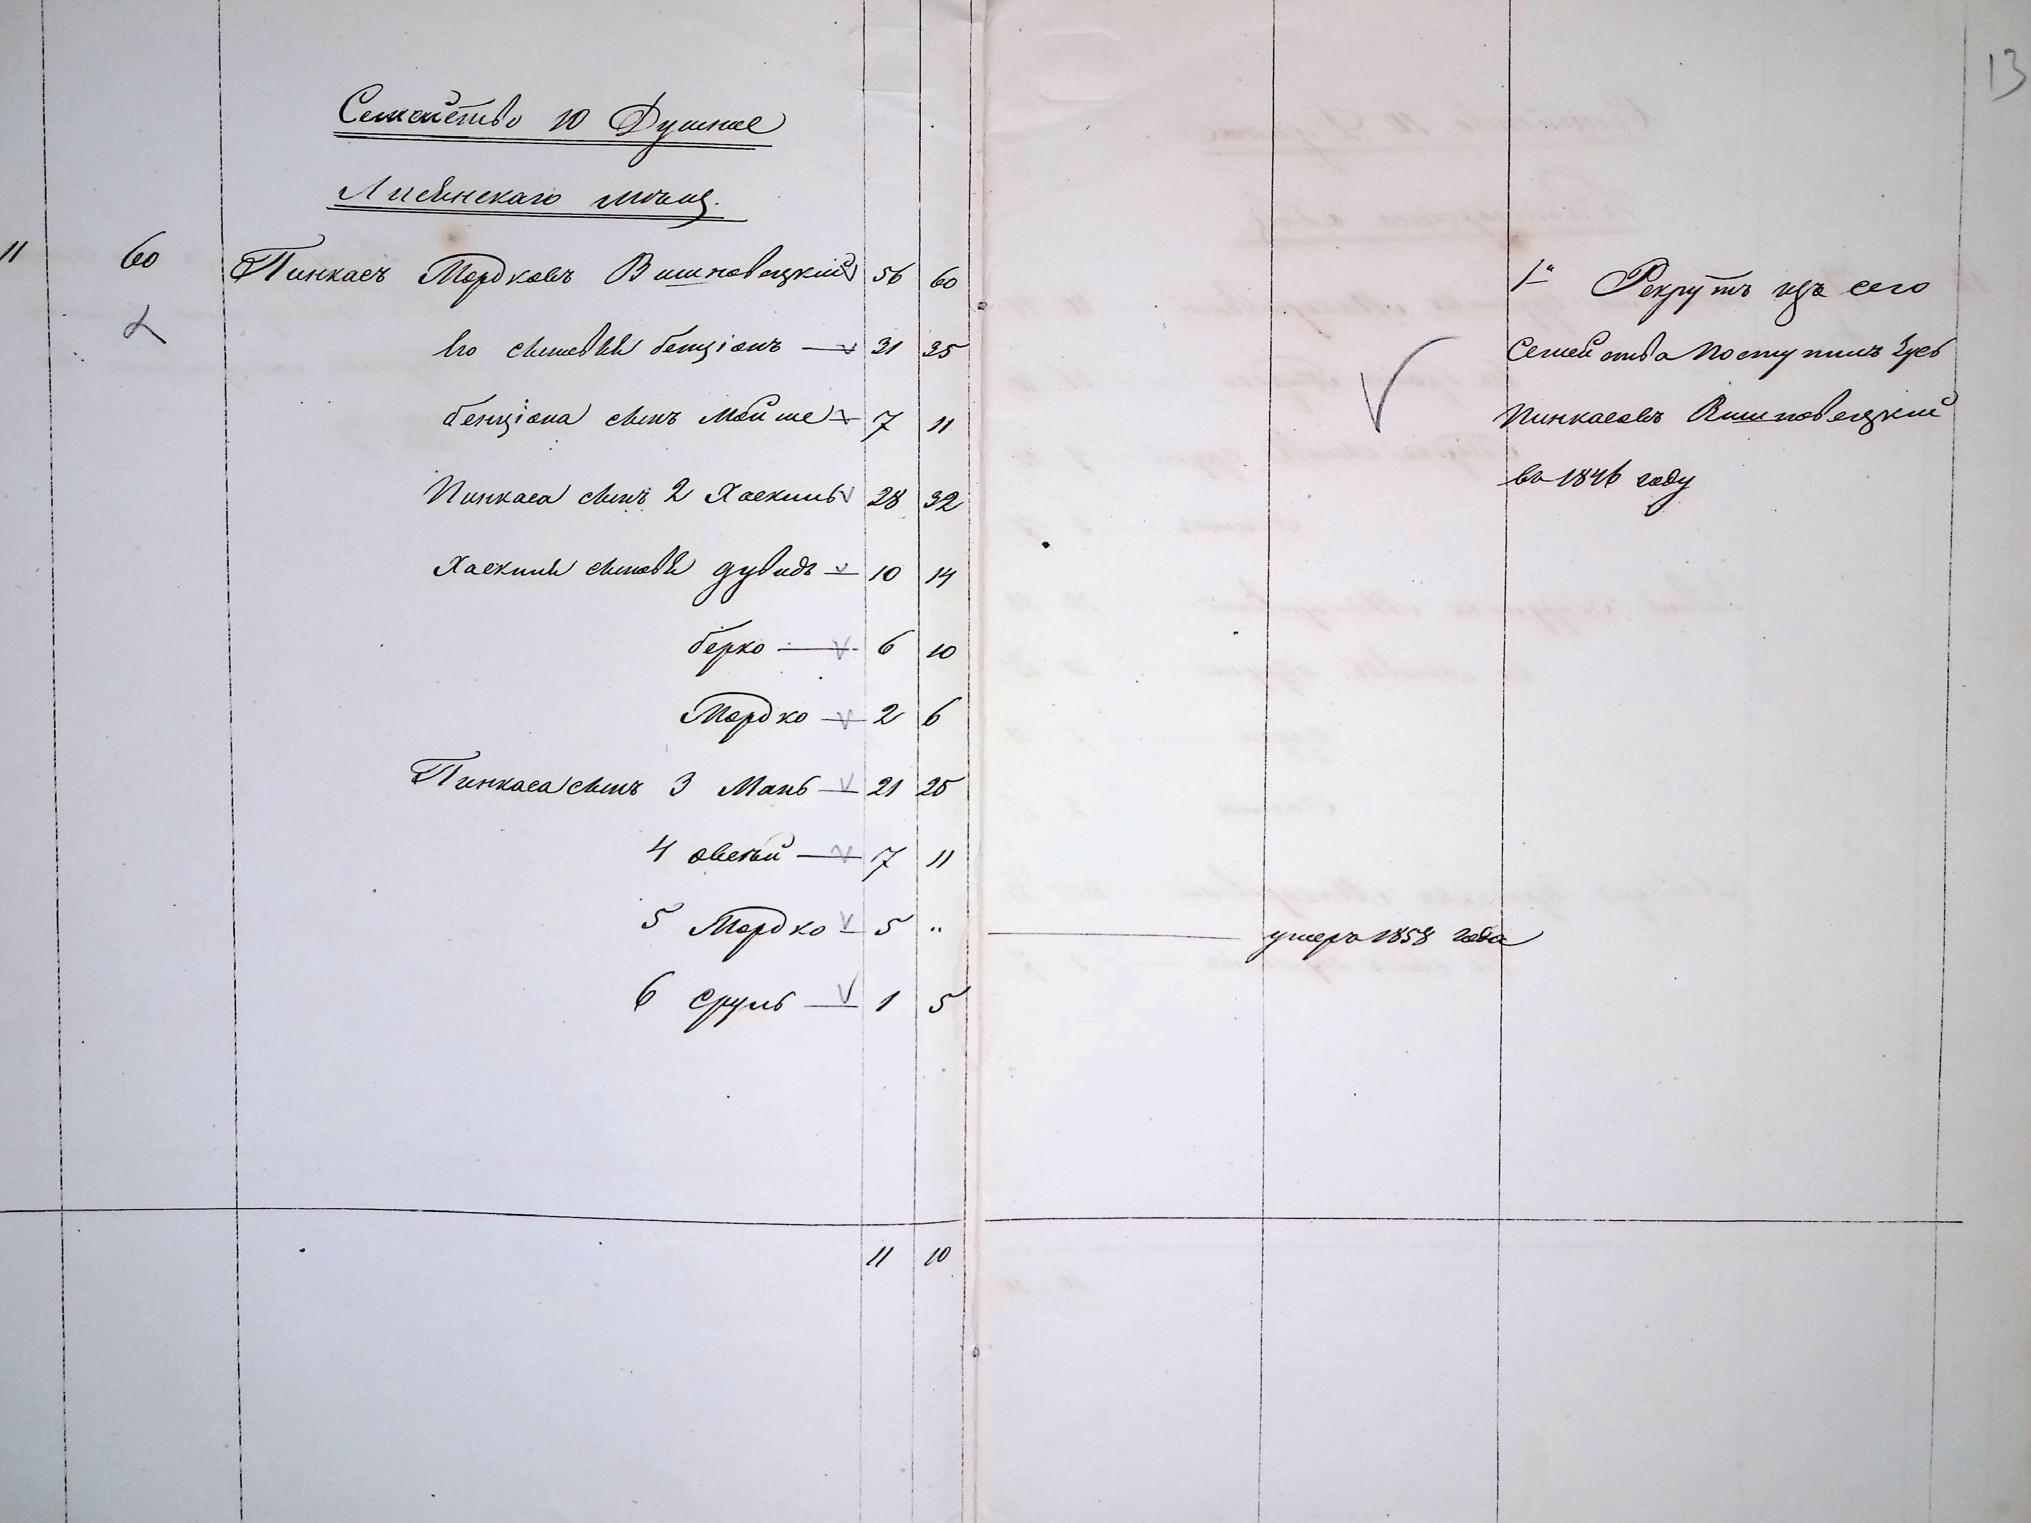 13
Семейство 10 Душное
Лисянскаго мѣщ.
11 60 Пинкасъ Мордковъ Вишновецкий 56 60
Его сыновья бенціонъ 31 35
бенціона сынъ Мойше 7 11
Пинкаса сынъ 2 Хаскиль 28 32
Хаскиля сыновья дувидъ 10 14
берко 6 10
Мордко 2 6
Пинкаса сынъ 3 Мань 21 25
4 овсей 7 11
5 Мордко 5 "
6 Сруль 1 5
11 10
умеръ 1858 года
1" Рекрутъ изъ сего
Семейства поступилъ
Пинкасовъ Вишновецкий
въ 1846 году